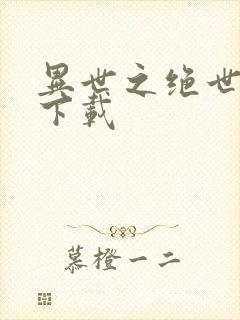 異世之绝世
下載
慕橙一二